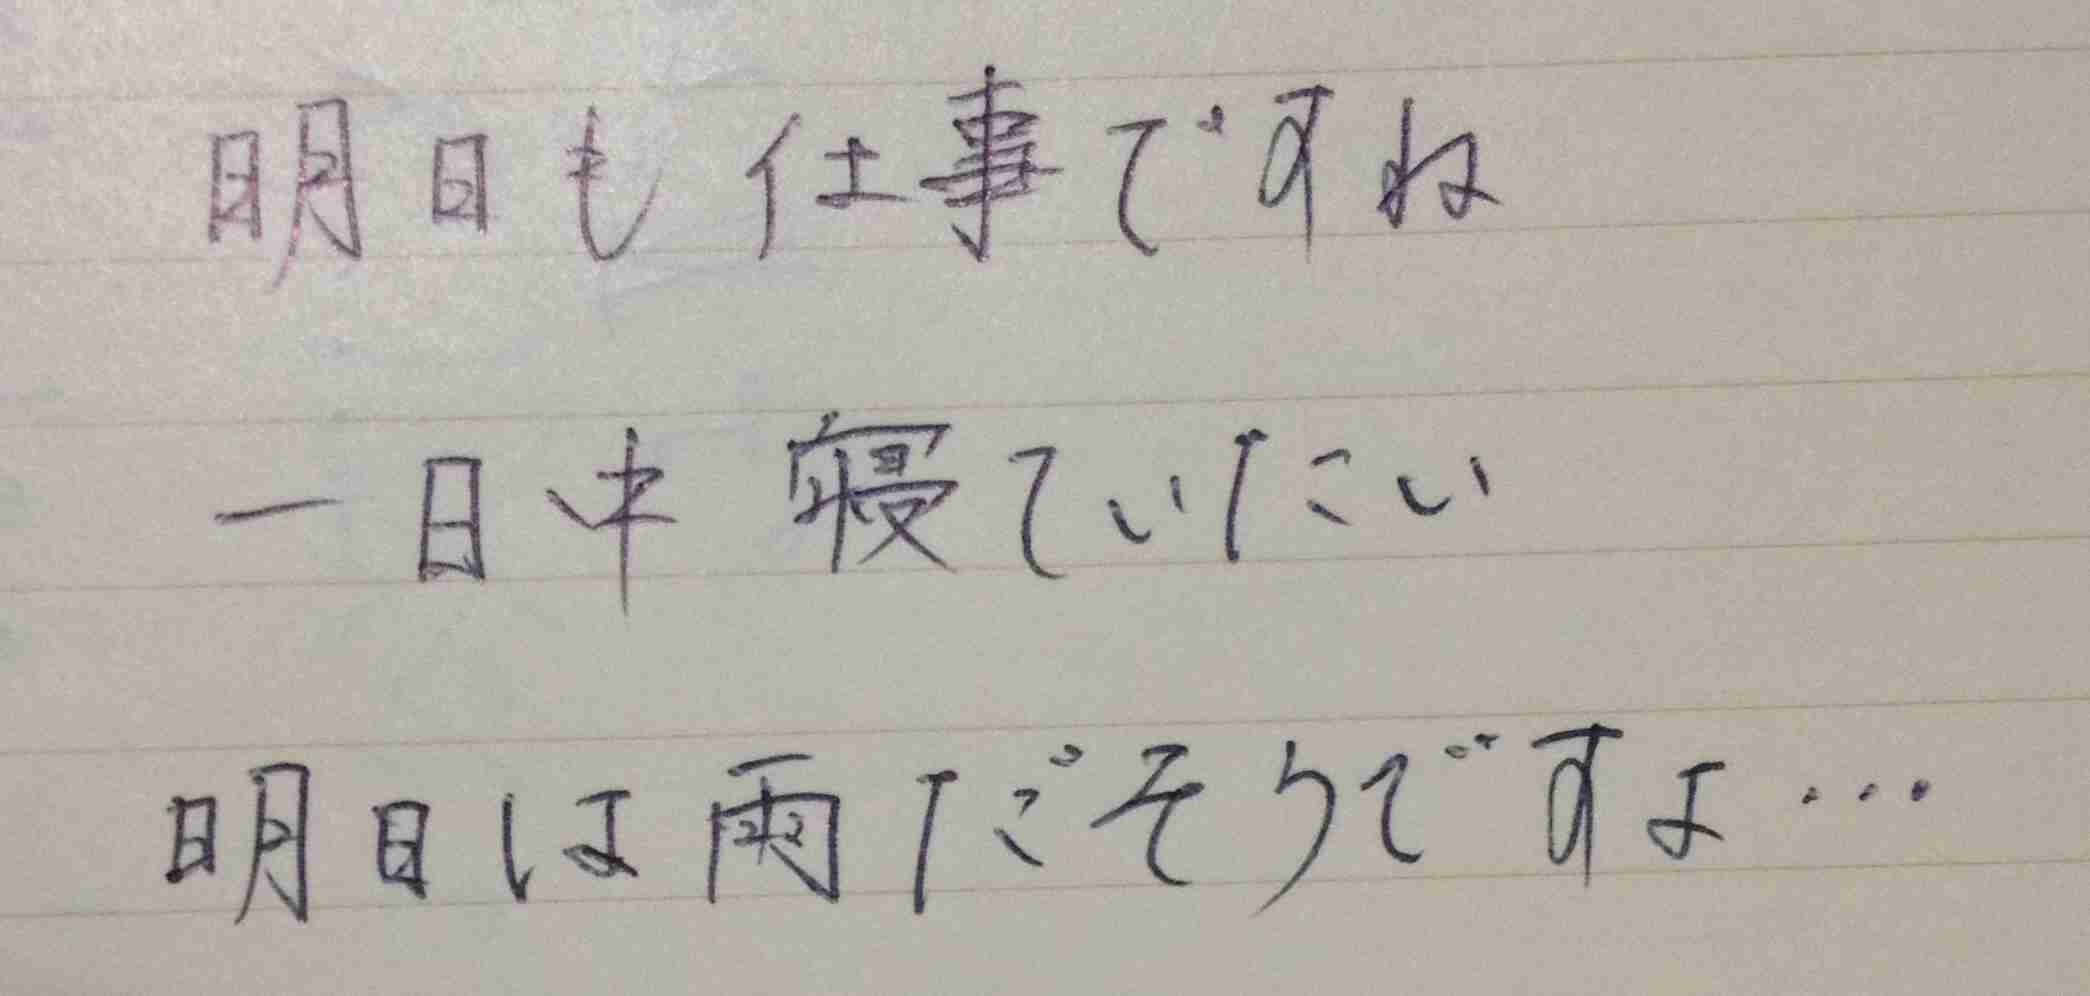 明日も仕事ですね
一日中寝ていたい
明日は雨だそうですよ…